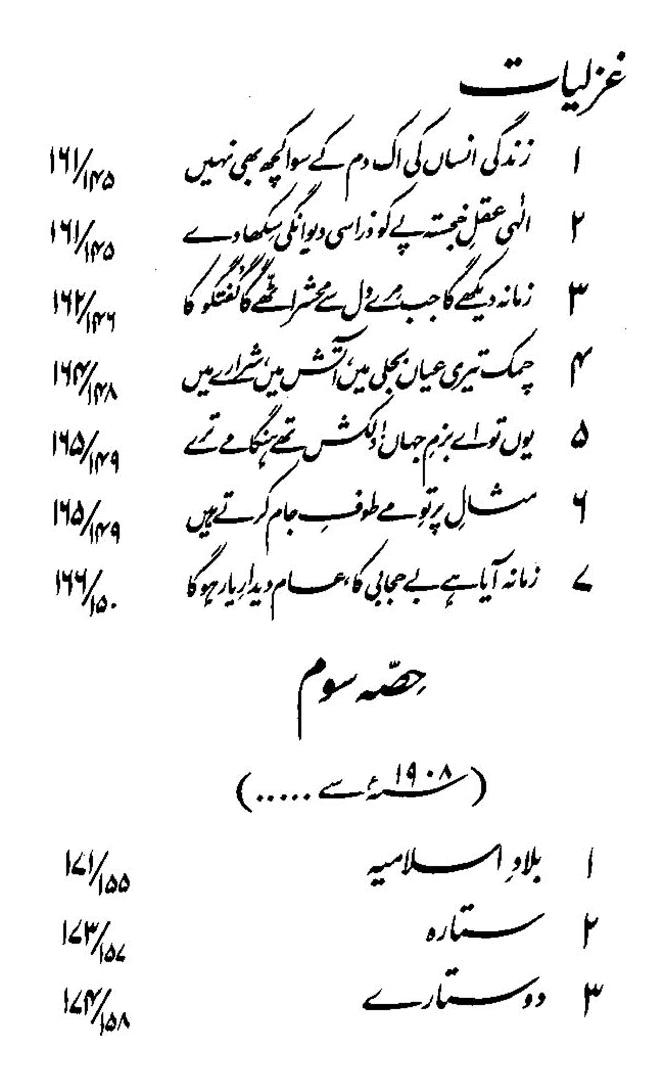 غزلیات
۱ زندگی انساں کی اک دم کے سوا کچھ بھی نہیں ۱۶۱/۱۴۵
۲ الٰہی عقلِ خجستہ پے کو ذرا سی دیوانگی سکھا دے ۱۶۱/۱۴۵
۳ زمانہ دیکھے گا جب مرے دل سے محشر اٹھے گا گفتگو کا ۱۶۲/۱۴۶
۴ چمک تیری عیاں بجلی میں، آتش میں، شرارے میں ۱۶۴/۱۴۸
۵ یوں تو اے بزمِ جہاں! دلکش تھے ہنگامے ترے ۱۶۵/۱۴۹
۶ مثالِ پرتوِ مے طوفِ جام کرتے ہیں ۱۶۵/۱۴۹
۷ زمانہ آیا ہے بے حجابی کا، عام دیدارِ یار ہوگا ۱۶۶/۱۵۰
حصّہ سوم
(۱۹۰۸ء سے .....)
۱ بلادِ اسلامیہ ۱۷۱/۱۵۵
۲ ستارہ ۱۷۳/۱۵۷
۳ دو ستارے ۱۷۴/۱۵۸